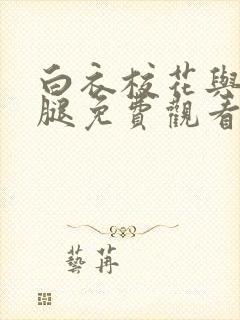 白衣校花與
腿免費觀看
藝苒